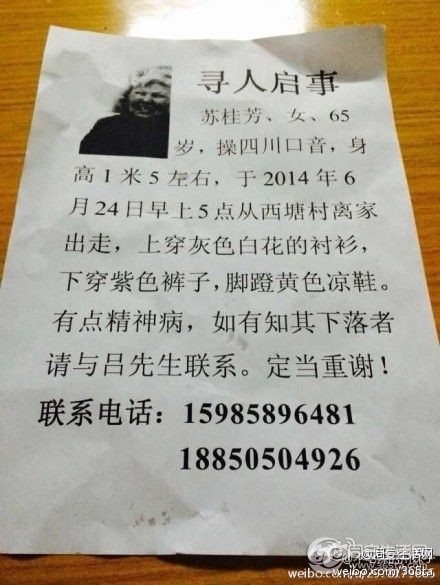 寻人启事
苏桂芳、女、65
岁，操四川口音，身
高1米5左右，于2014年6
月24日早上5点从西塘村离家
出走，上穿灰色白花的衬衫，
下穿紫色裤子，脚蹬黄色凉鞋。
有点精神病，如有知其下落者
请与吕先生联系。定当重谢！
联系电话：15985896481
18850504926
@同安生活网
weibo.com/365ta